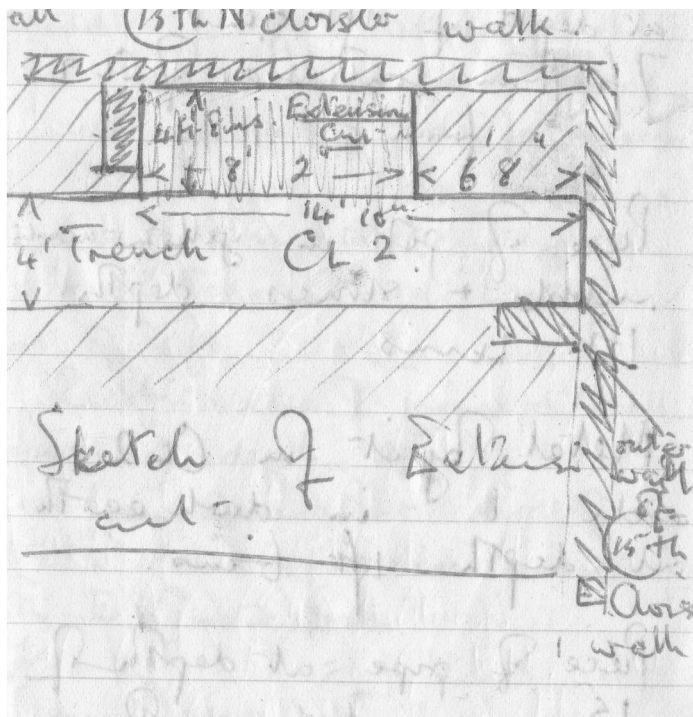 all 15th N cloister walk.
4ft 2ins. Extension
Cut
8' 2" 6' 8"
14' 10"
4' Trench CL 2
Sketch of Extensi
cut.
outer
wall
of
15th
E Clois
walk